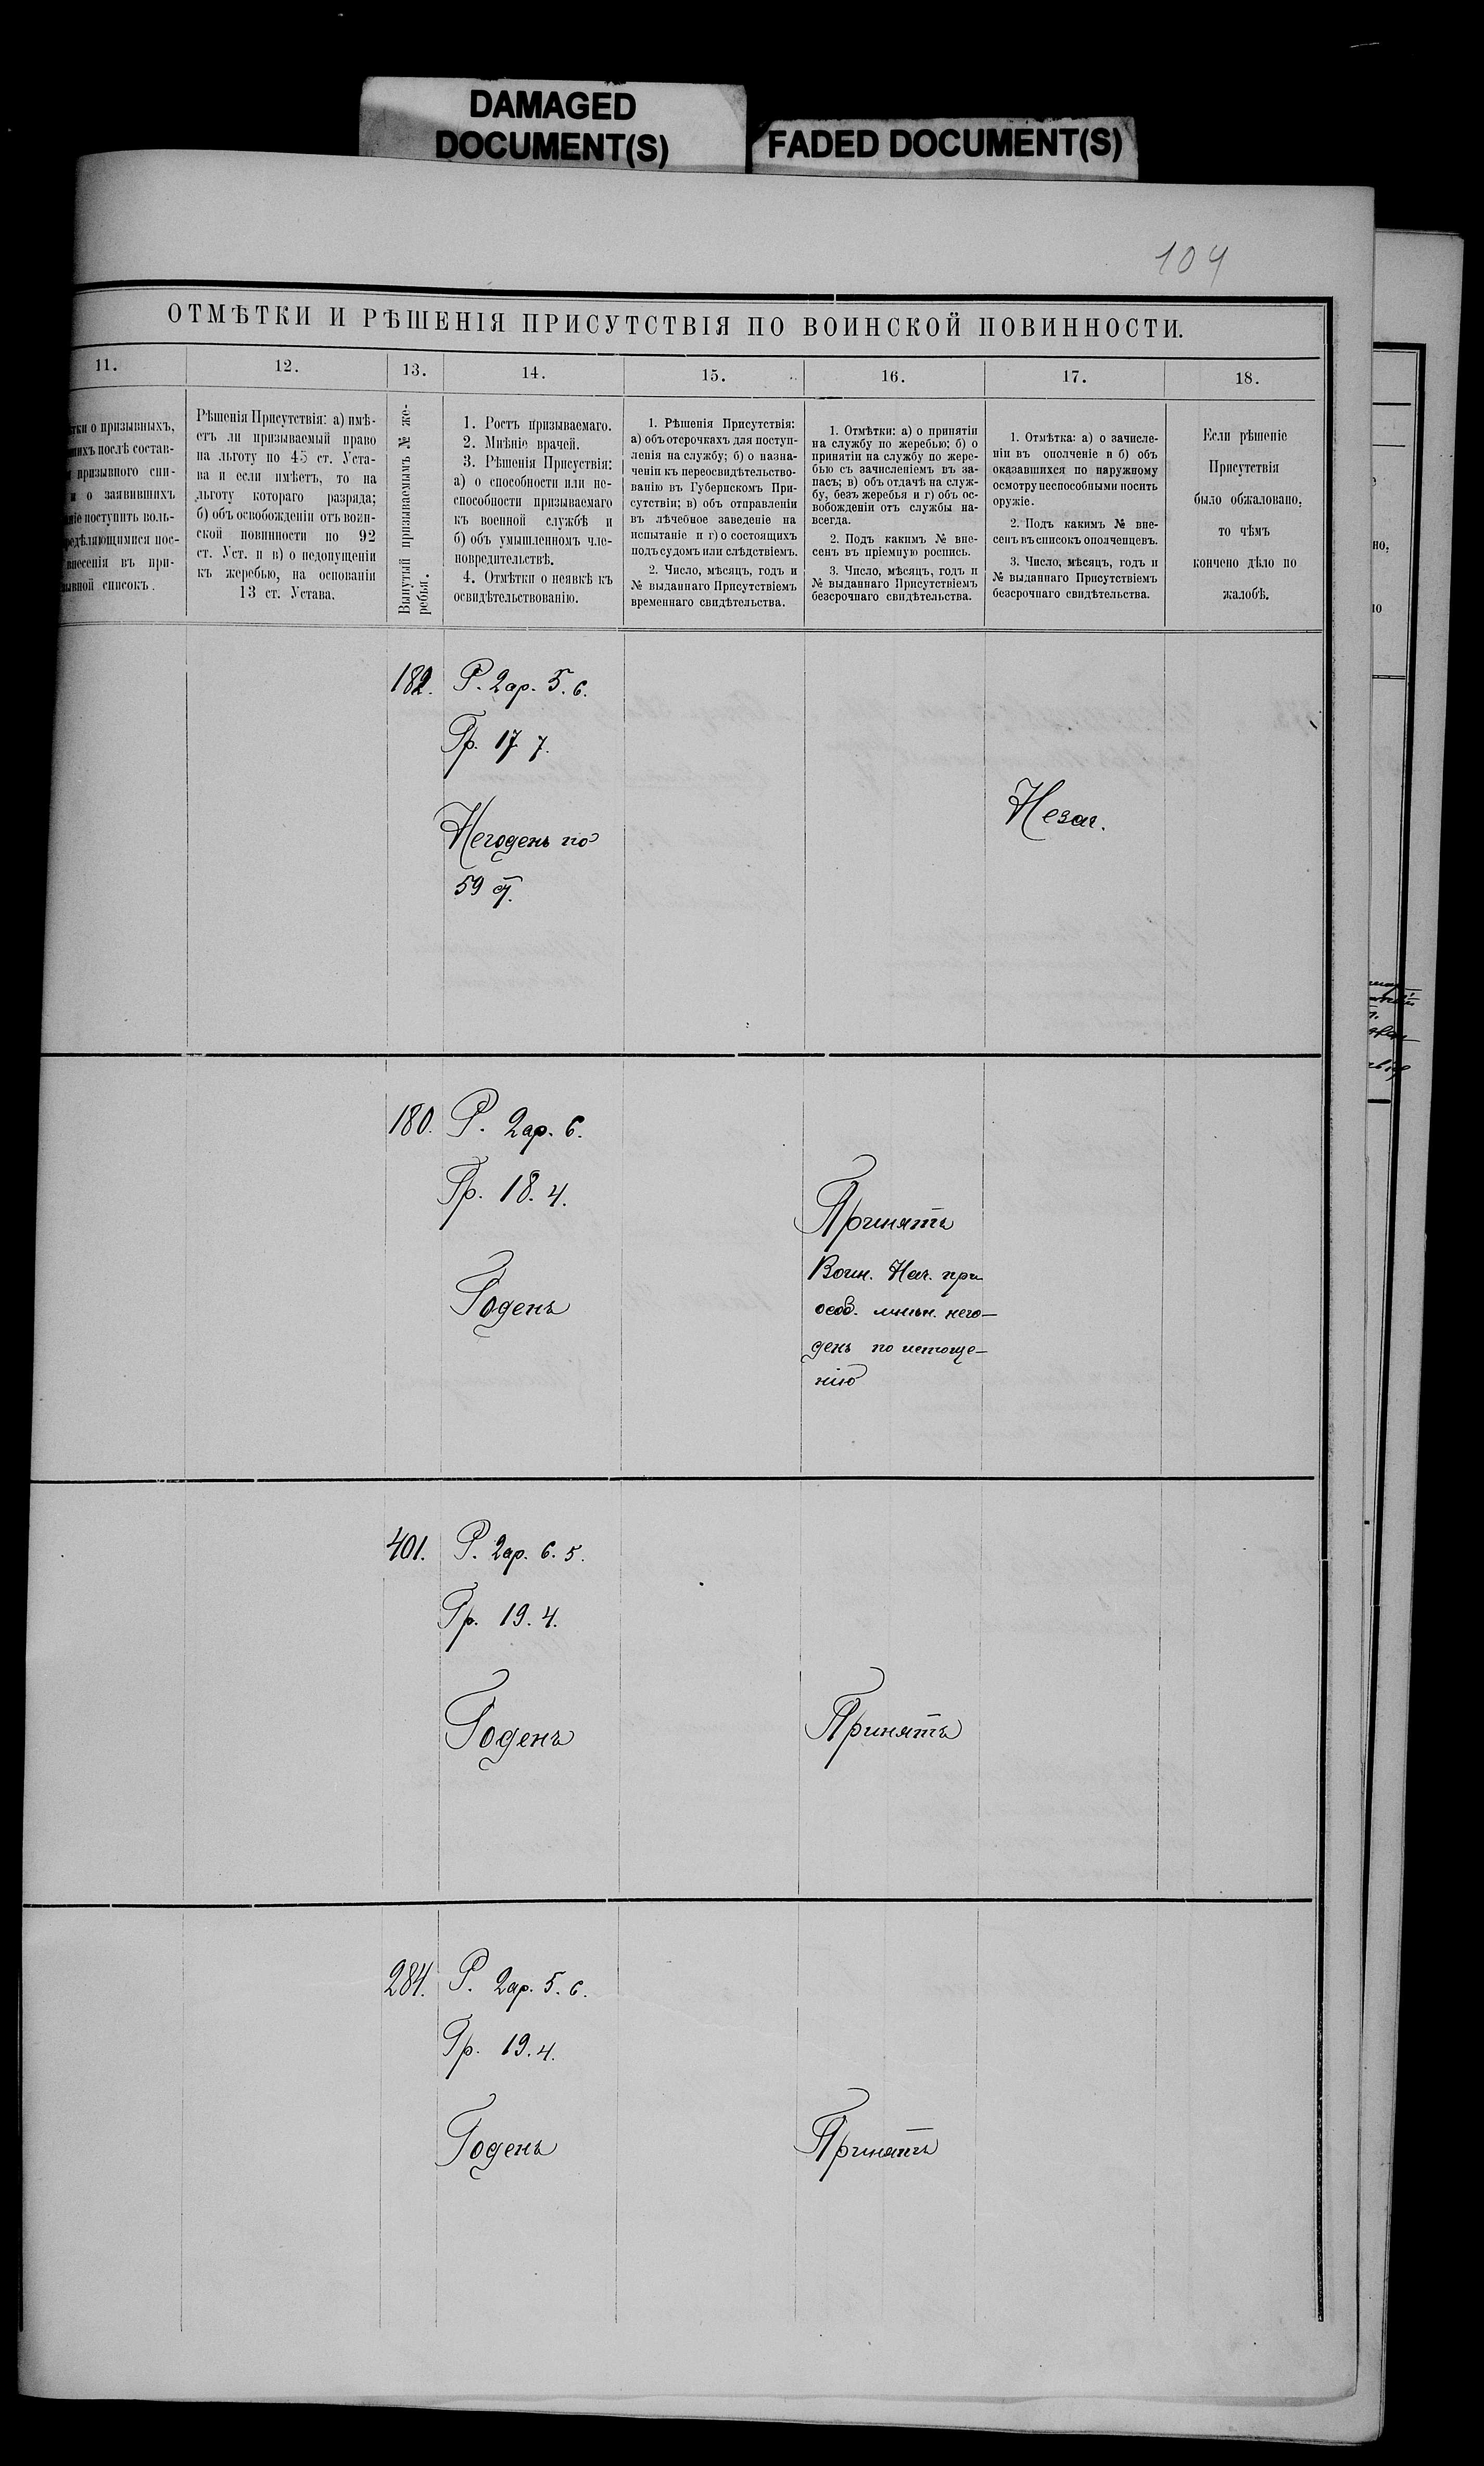 DAMAGED
DOCUMENT(S)
FADED DOCUMENT(S)
104
ОТМѢТКИ И РѢШЕНІЯ ПРИСУТСТВІЯ ПО ВОИНСКОЙ ПОВИННОСТИ.
11.
12.
13.
14.
15.
16.
17.
18.
о призывныхъ,
послѣ состав-
призывного спи-
и о заявившихъ
поступить воль-
внесенія въ при-
списокъ.
Рѣшенія Присутствія: а) имѣ-
етъ ли призываемый право
на льготу по 45 ст. Уста-
ва и если имѣетъ, то на
льготу котораго разряда;
б) объ освобожденіи отъ воин-
ской повинности по 92
ст. Уст. и в) о недопущеніи
къ жеребью, на основаніи
13 ст. Устава.
Вынутый призываемымъ № же-
ребья.
1. Ростъ призываемаго.
2. Мнѣніе врачей.
3. Рѣшенія Присуствія:
а) о способности или не-
способности призываемаго
къ военной службѣ и
б) объ умышленномъ чле-
новредительствѣ.
4. Отмѣтки о неявкѣ къ
освидѣтельствованію.
1. Рѣшенія Присутствія:
а) объ отсрочкахъ для поступ-
ленія на службу; б) о назна-
ченіи къ переосвидѣтельство-
ванію въ Губернскомъ При-
сутствіи; в) объ отправленіи
въ лѣчебное заведеніе на
испытаніе и г) о состоящихъ
подъ судомъ или слѣдствіемъ.
2. Число, мѣсяцъ, годъ и
№ выданнаго Присутствіемъ
временнаго свидѣтельства.
1. Отмѣтки: а) о принятіи
на службу по жеребью; б) о
принятіи на службу по жере-
бью съ зачисленіемъ въ за-
пасъ; в) объ отдачѣ на служ-
бу, безъ жеребья и г) объ ос-
вобожденіи отъ службы на-
всегда.
2. Подъ какимъ № вне-
сенъ въ пріемную роспись.
3. Число, мѣсяцъ, годъ и
№ выданнаго Присутствіемъ
безсрочнаго свидѣтельства.
1. Отмѣтка: а) о зачисле-
ніи въ ополченіе и б) объ
оказавшихся по наружному
осмотру неспособными носить
оружіе.
2. Подъ какимъ № вне-
сенъ въ списокъ ополченцевъ.
3. Число, мѣсяцъ, годъ и
№ выданнаго Присутствіемъ
безсрочнаго свидѣтельства.
Если рѣшеніе
Присутствія
было обжаловано,
то чѣмъ
кончено дѣло по
жалобѣ.
182.
Р. 2ар. 5. 6.
Гр. 17 7.
Негоденъ по
59 ст.
Незач.
180.
Р. 2ар. 6.
Гр. 18. 4.
Годенъ
Принятъ
Воин. Нач. при
особ. мнѣн. него-
денъ по истоще-
нію
401.
Р. 2ар. 6. 5.
Гр. 19. 4.
Годенъ
Принятъ
284.
Р. 2ар. 5. 6.
Гр. 19. 4.
Годенъ
Принятъ